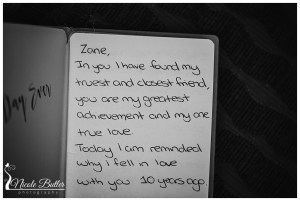 Day Ever
Zane,
In you I have found my
truest and closest friend,
you are my greatest
achievement and my one
true love.
Today I am reminded
why I fell in love
with you 10 years ago
Nicole Butler
photography